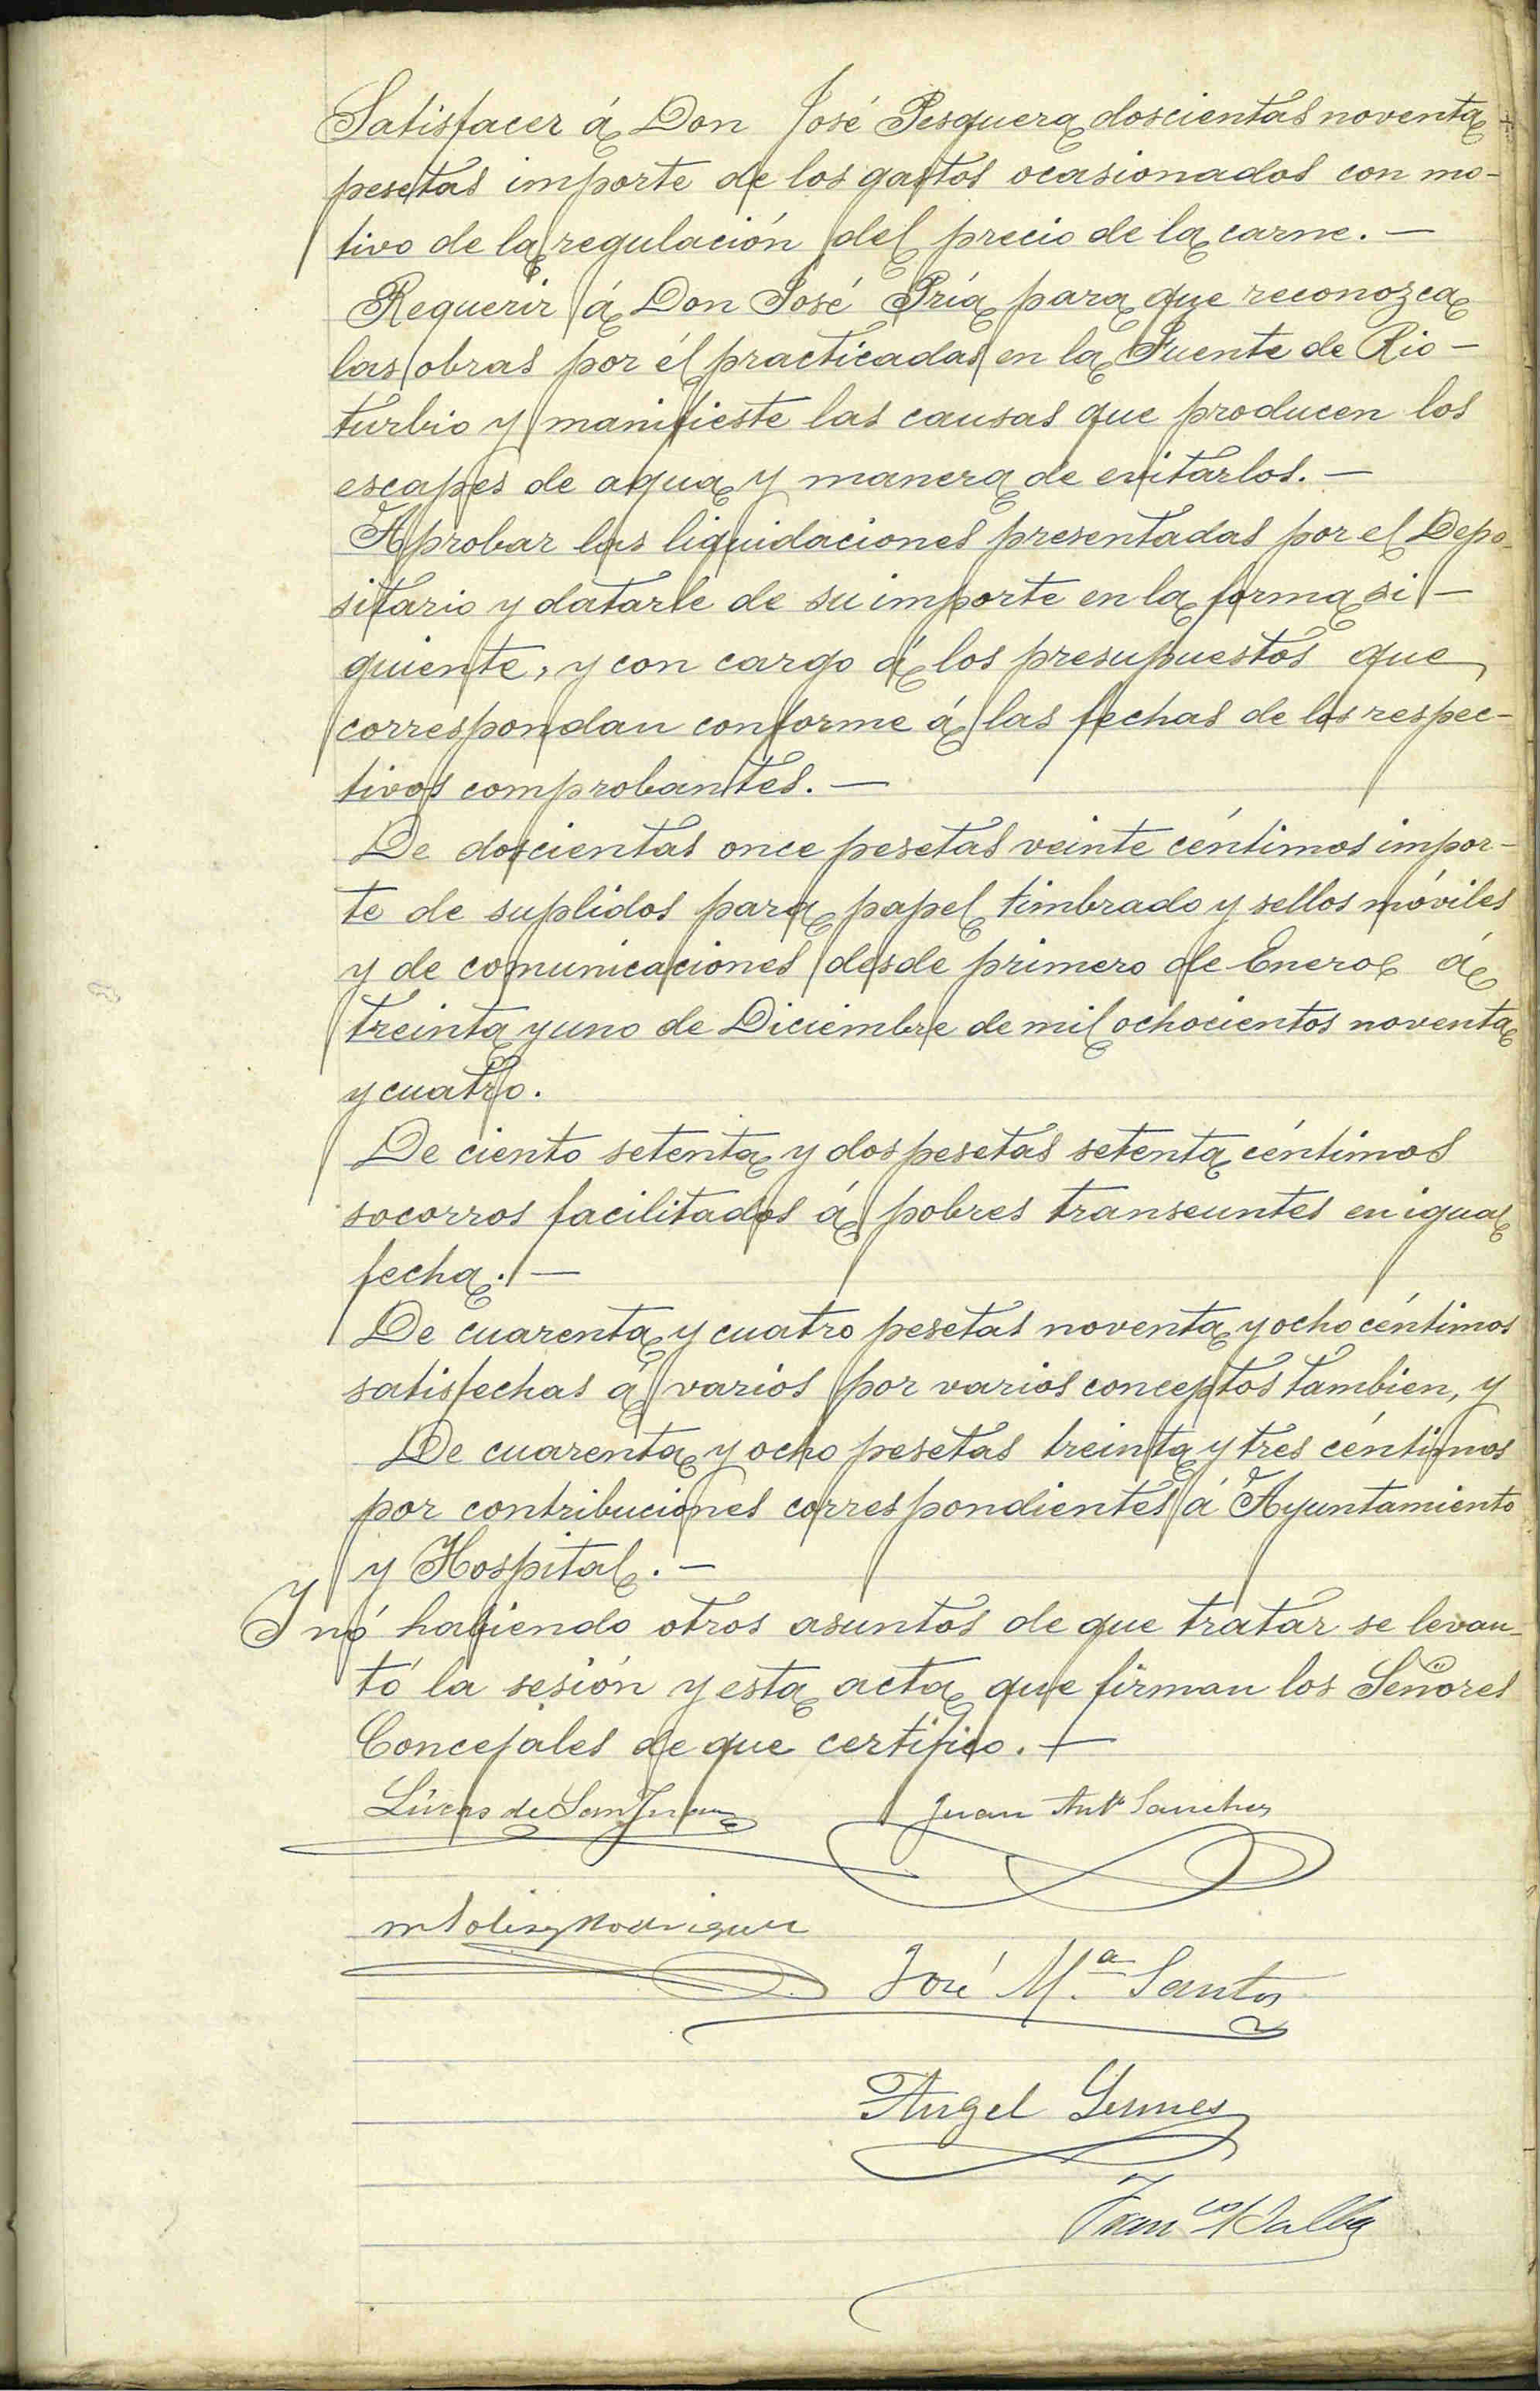 Satisfacer á Don José Pesquera doscientas noventa
pesetas importe de los gastos ocasionados con mo-
tivo de la regulación del precio de la carne. —
Requerir á Don José Pría para que reconozca
las obras por él practicadas en la Fuente de Rio-
turbio y manifieste las causas que producen los
escapes de agua y manera de evitarlos. —
Aprobar las liquidaciones presentadas por el Depo-
sitario y datarle de su importe en la forma si-
guiente, y con cargo á los presupuestos que
correspondan conforme á las fechas de los respec-
tivos comprobantes. —
De doscientas once pesetas veinte céntimos impor-
te de suplidos para papel timbrado y sellos móviles
y de comunicaciones desde primero de Enero á
treinta y uno de Diciembre de mil ochocientos noventa
y cuatro.
De ciento setenta y dos pesetas setenta céntimos
socorros facilitados á pobres transeuntes en igual
fecha. —
De cuarenta y cuatro pesetas noventa y ocho céntimos
satisfechas á varios por varios conceptos tambien, y
De cuarenta y ocho pesetas treinta y tres céntimos
por contribuciones correspondientes á Ayuntamiento
y Hospital. —
Y nó habiendo otros asuntos de que tratar se levan-
tó la sesión y esta acta que firman los Señores
Concejales de que certifico. —
Lúcas de San Juan
Juan Antº Sanchez
M Solis y Rodriguez
José M.ª Santos
Angel
Franco